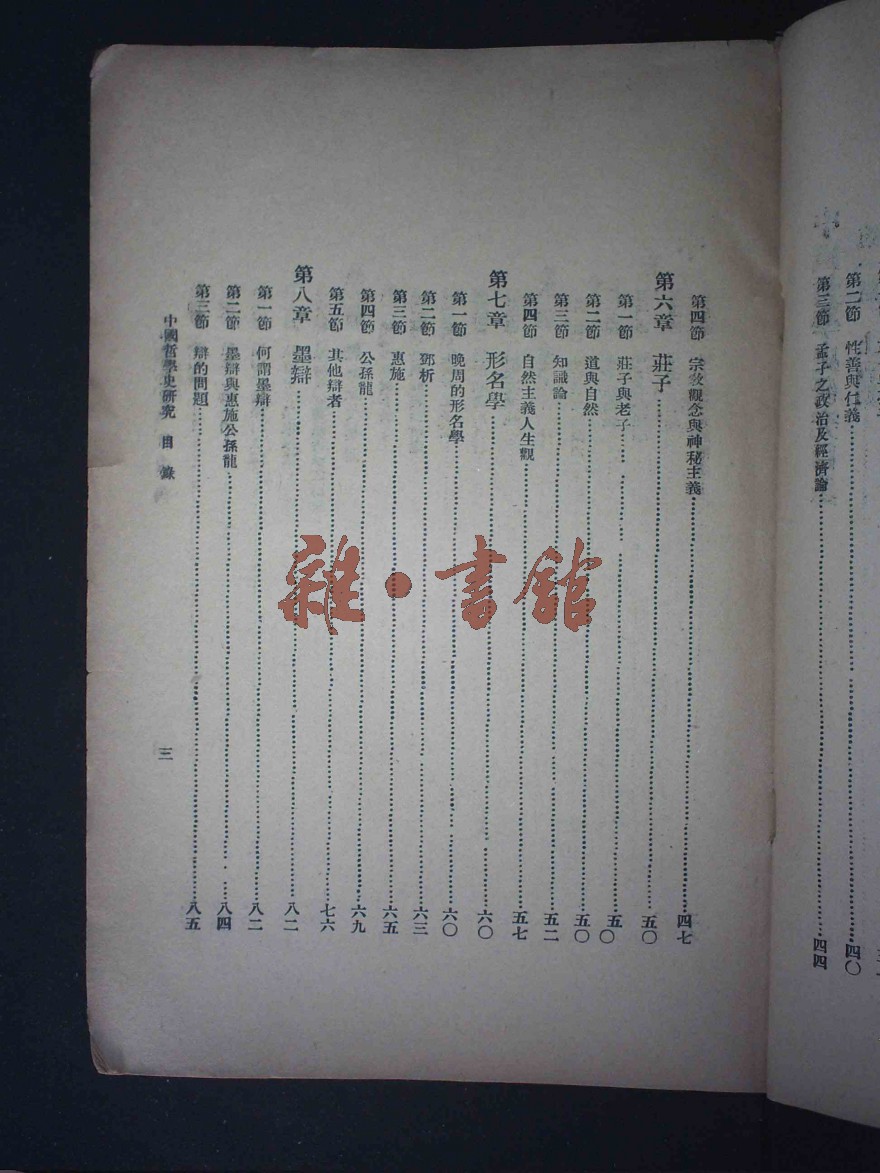 第二節　性善與仁義……四〇
第三節　孟子之政治及經濟論……四四
第四節　宗敎觀念與神秘主義……四七
第六章　莊子……五〇
第一節　莊子與老子……五〇
第二節　道與自然……五〇
第三節　知識論……五二
第四節　自然主義人生觀……五七
第七章　形名學……六〇
第一節　晚周的形名學……六〇
第二節　鄧析……六三
第三節　惠施……六五
第四節　公孫龍……六九
第五節　其他辯者……七六
第八章　墨辯……八二
第一節　何謂墨辯……八二
第二節　墨辯與惠施公孫龍……八四
第三節　辯的問題……八五
中國哲學史研究　目錄
三
雜·書館